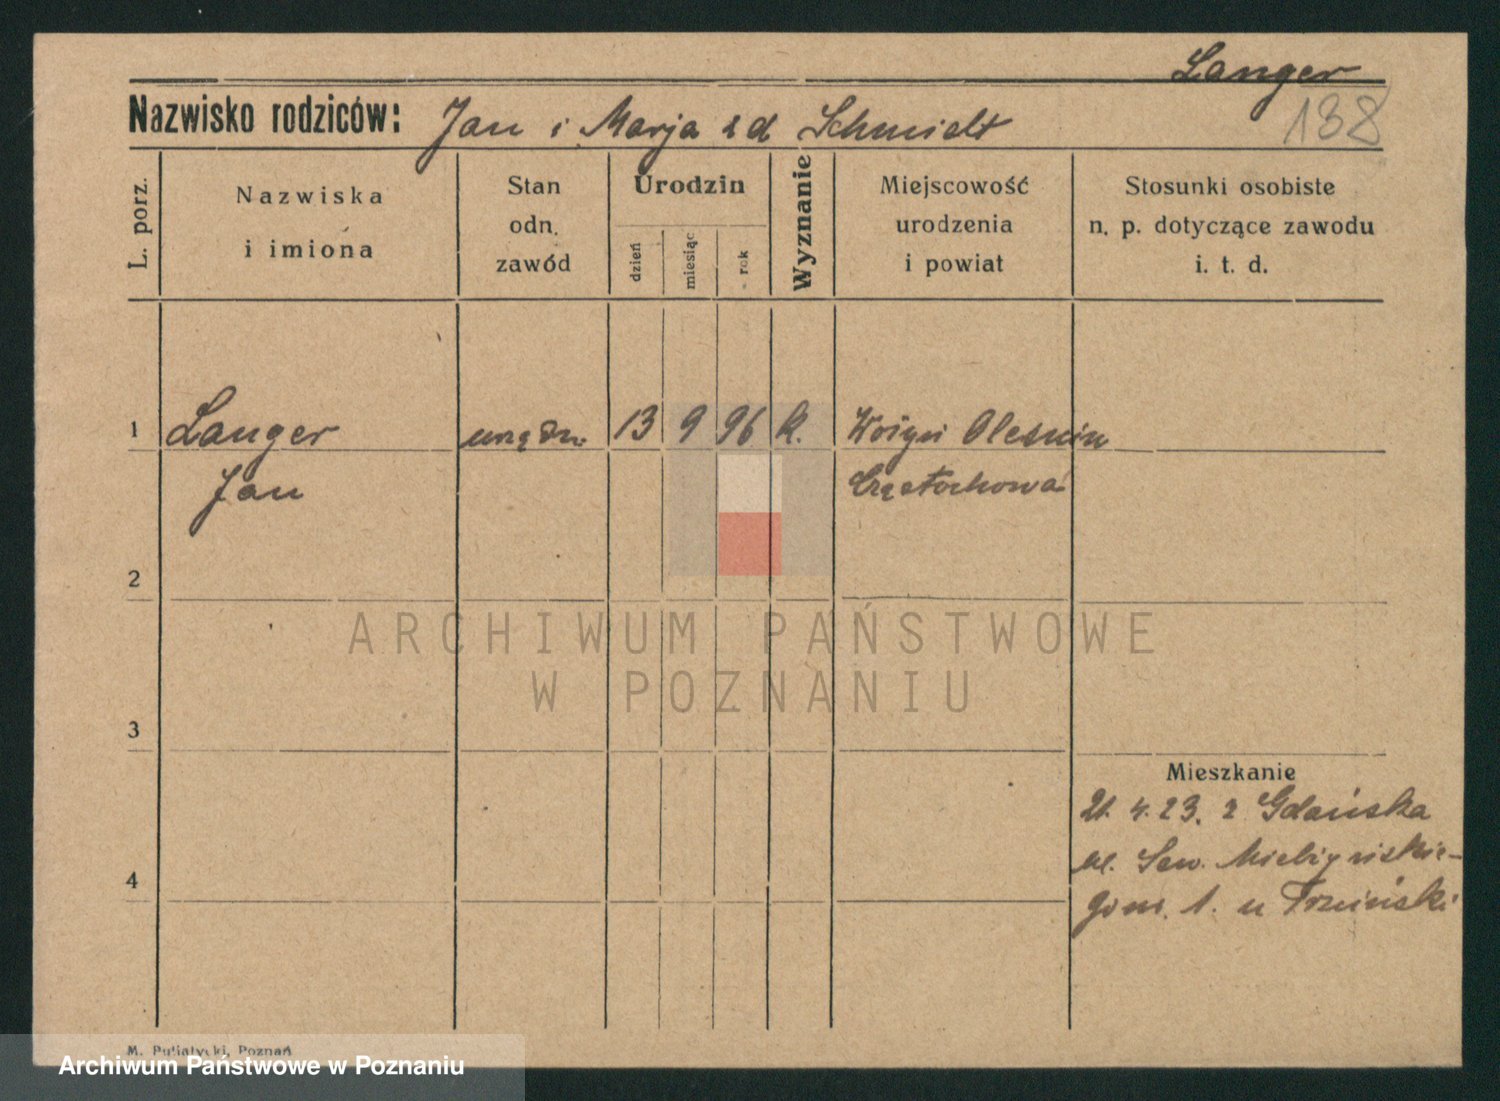 Langer
138
Nazwisko rodziców: Jan i Marja z d Schmidt
L. porz.
Nazwiska
i imiona
Stan
odn.
zawód
Urodzin
dzień
miesiąc
rok
Wyznanie
Miejscowość
urodzenia
i powiat
Stosunki osobiste
n. p. dotyczące zawodu
i. t. d.
1 Langer urzędn. 13 9 96 k.
Jan Częstochowa
2
ARCHIWUM PAŃSTWOWE
W POZNANIU
3
Mieszkanie
21. 4. 23. z Gdańska
ul. Sew. Mielżyńskie-
go nr. 1. u
4
M. Putiatycki, Poznań
Archiwum Państwowe w Poznaniu